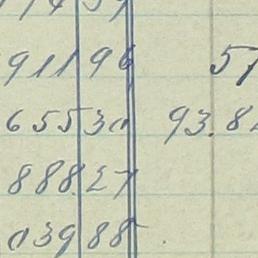 911 96 51
655 30 93.8
888 27
039 88